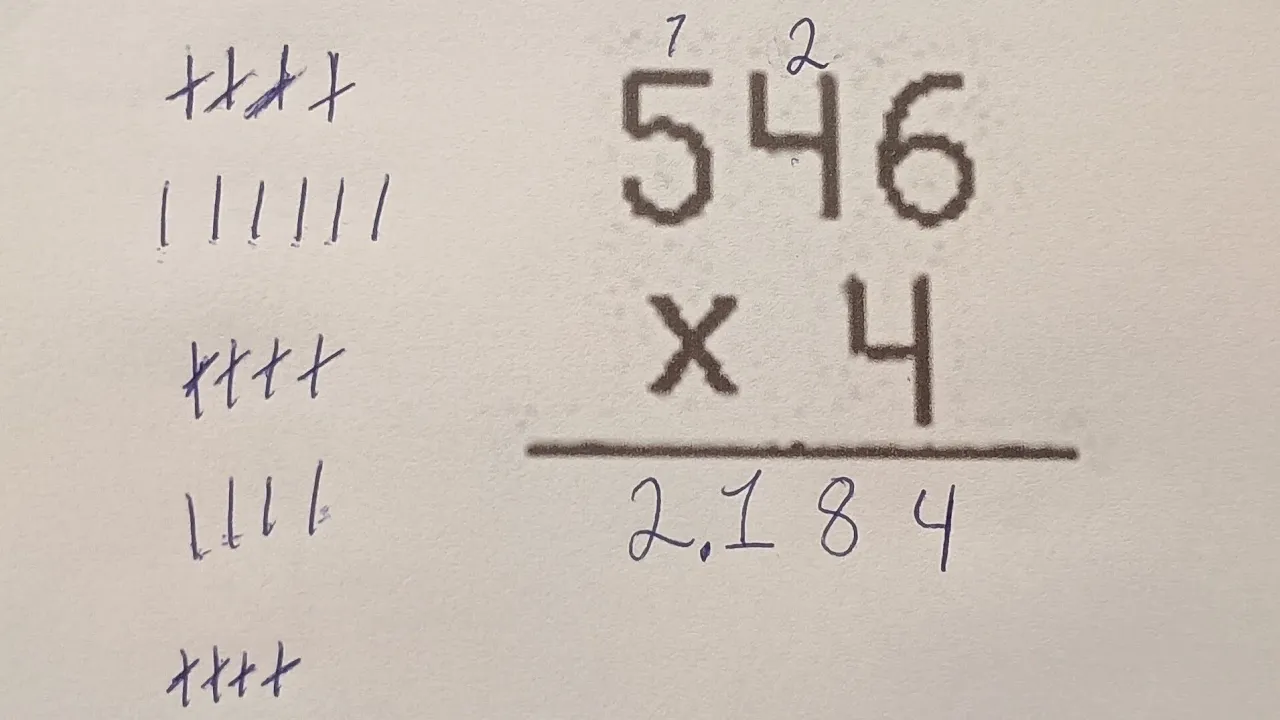 1 2
546
x 4
2.184